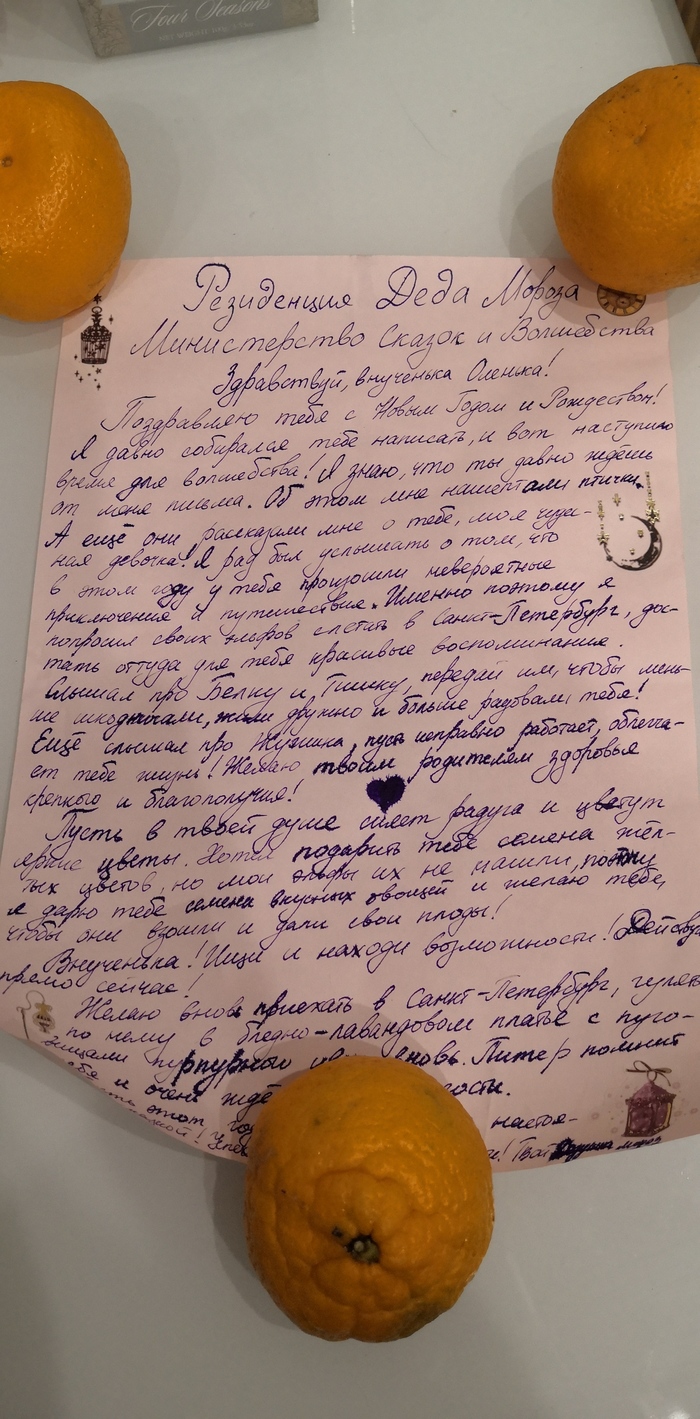 Four Seasons
Резиденция Деда Мороза
Министерство Сказок и Волшебства
Здравствуй, внученька Оленька!
Поздравляю тебя с Новым Годом и Рождеством!
Я давно собирался тебе написать, и вот наступило
время для волшебства! Я знаю, что ты давно ждёшь
от меня письма. Об этом мне нашептали птички.
А ещё они рассказали мне о тебе, моя чудес-
ная девочка! Я рад был услышать о том, что
в этом году у тебя произошли невероятные
приключения и путешествия. Именно поэтому я
попросил своих эльфов слетать в Санкт-Петербург, дос-
тать оттуда для тебя красивые воспоминание.
Слышал про Белку и Тишку, передай им, чтобы мень-
ше шкодничали, жили дружно и больше радовали тебя!
Ещё слышал про пусть исправно работает, облегча-
ет тебе жизнь! Желаю твоим родителям здоровья
крепкого и благополучия!
Пусть в твоей душе сияет радуга и цветут
яркие цветы. Хотел подарить тебе семена жёл-
тых цветов, но мои эльфы их не нашли, поэтому
я дарю тебе семена вкусных овощей и желаю тебе,
чтобы они взошли и дали свои плоды!
Внученька! Ищи и находи возможности! Действуй
прямо сейчас!
Желаю вновь приехать в Санкт-Петербург, гулять
по нему в бледно-лавандовом платье с пуго-
вицами пурпурного вновь. Питер помнит
и очень
этом настоя-
Твой Дедушка мороз